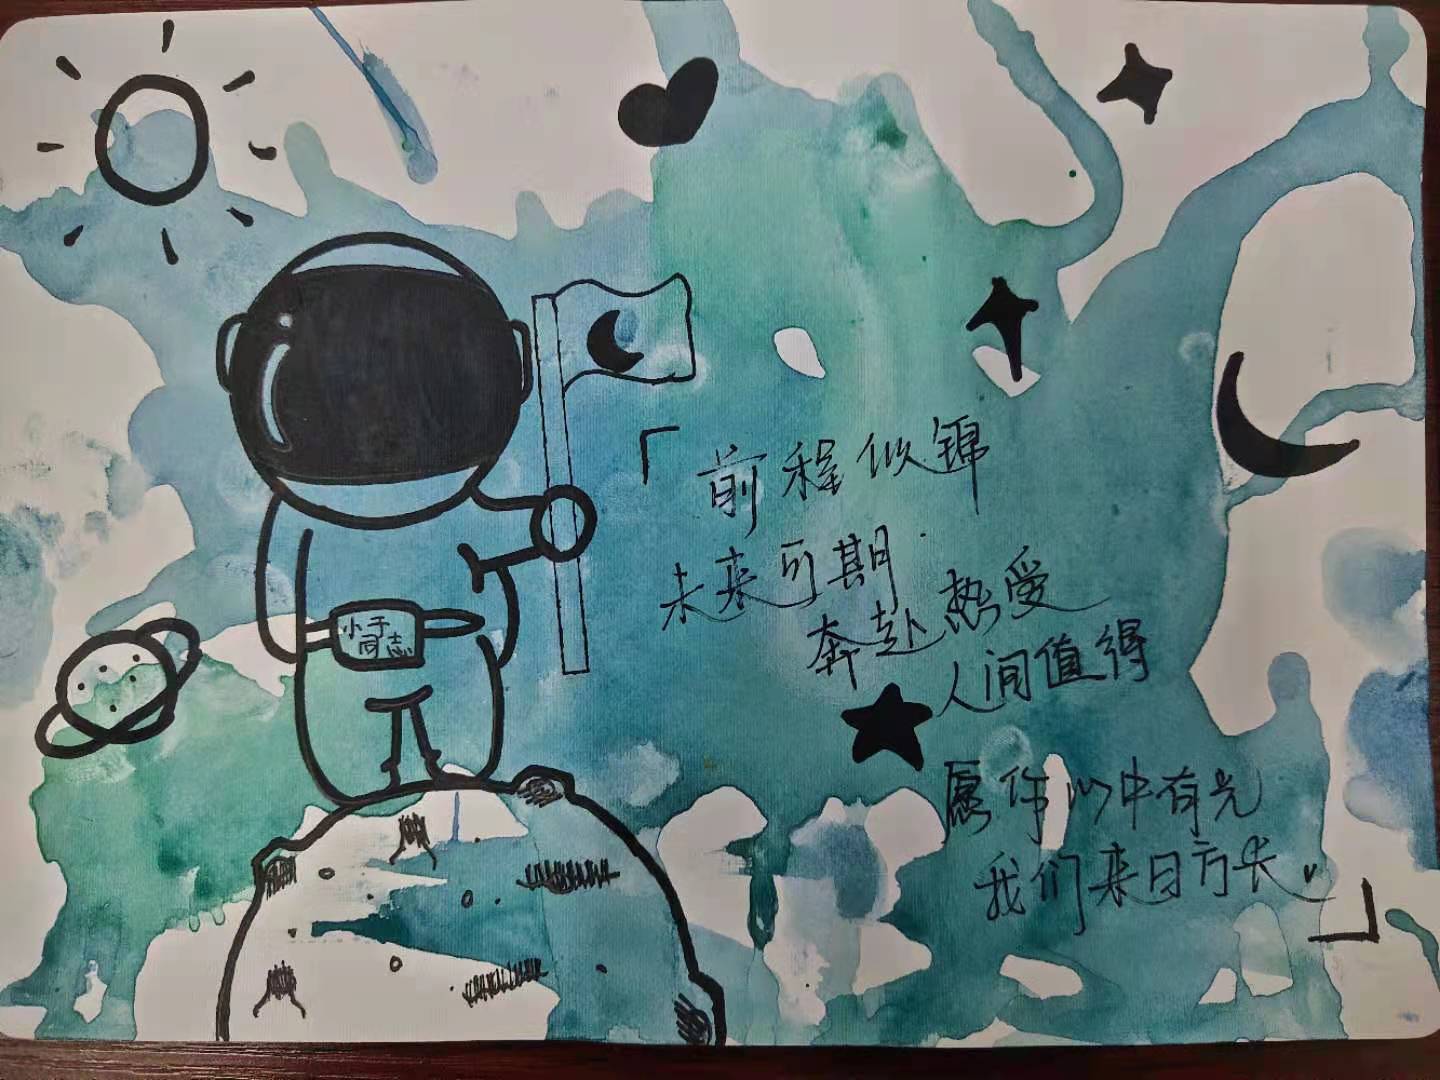 小于
同志
「前程似锦
未来可期
奔赴热爱
人间值得
愿你心中有光
我们来日方长」